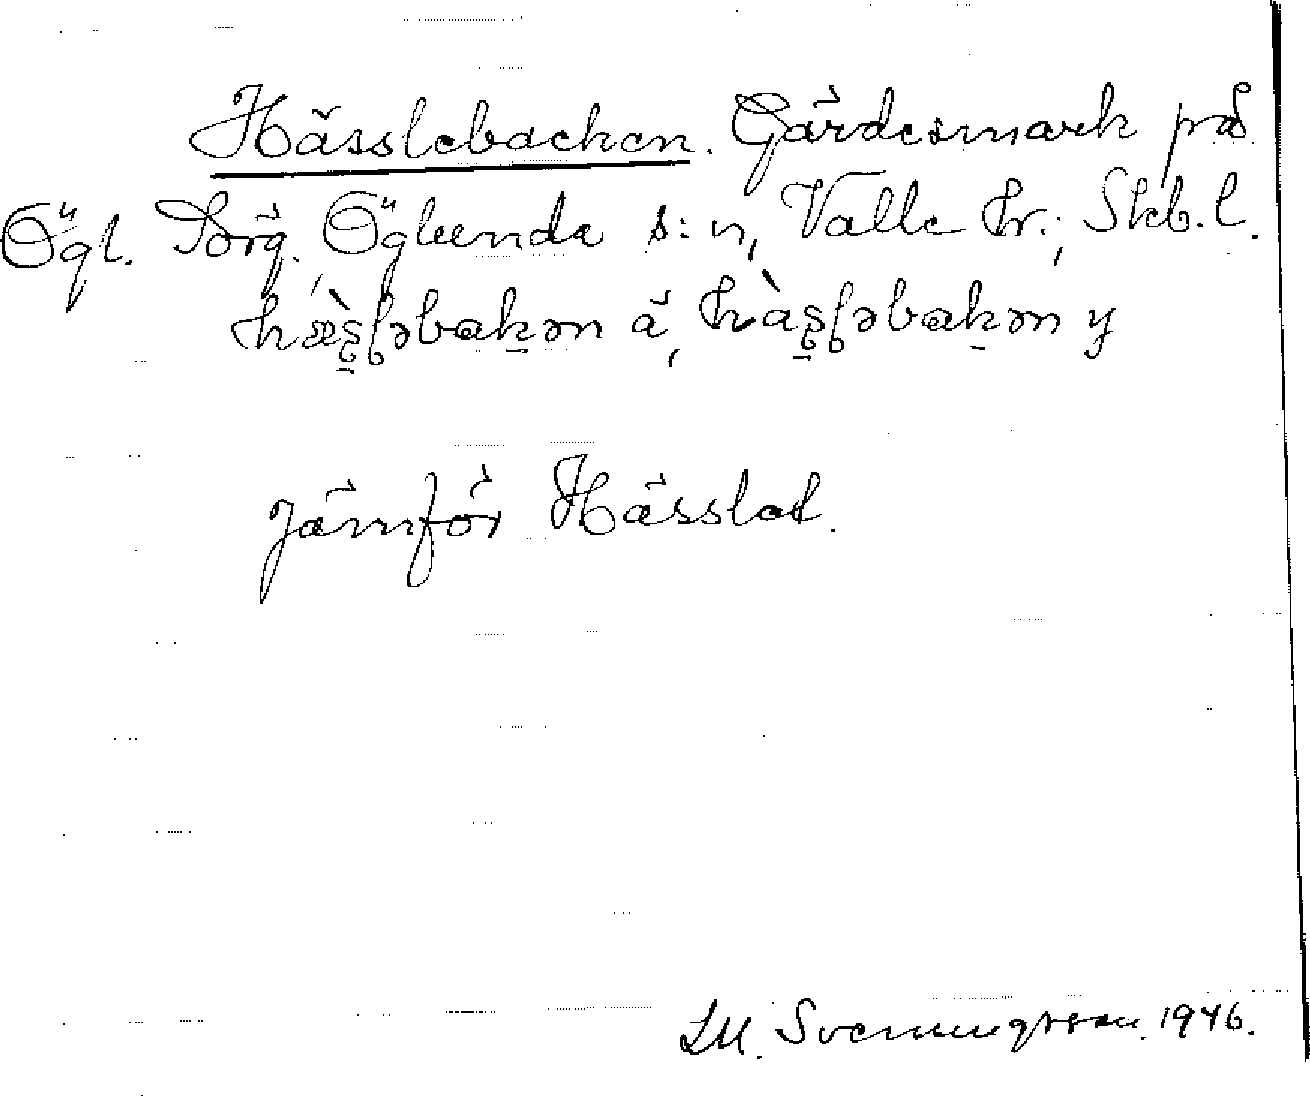 Hässlebacken. Gärdesmark på
Ögl. Törq. Öglunda s:n, Valle hr.; Skb.l.
hæ̀s̠ḷəbak̠ən ä, hàs̠ḷəbak̠ən y
jämför Hässlot.
LM. Svenningsson. 1946.